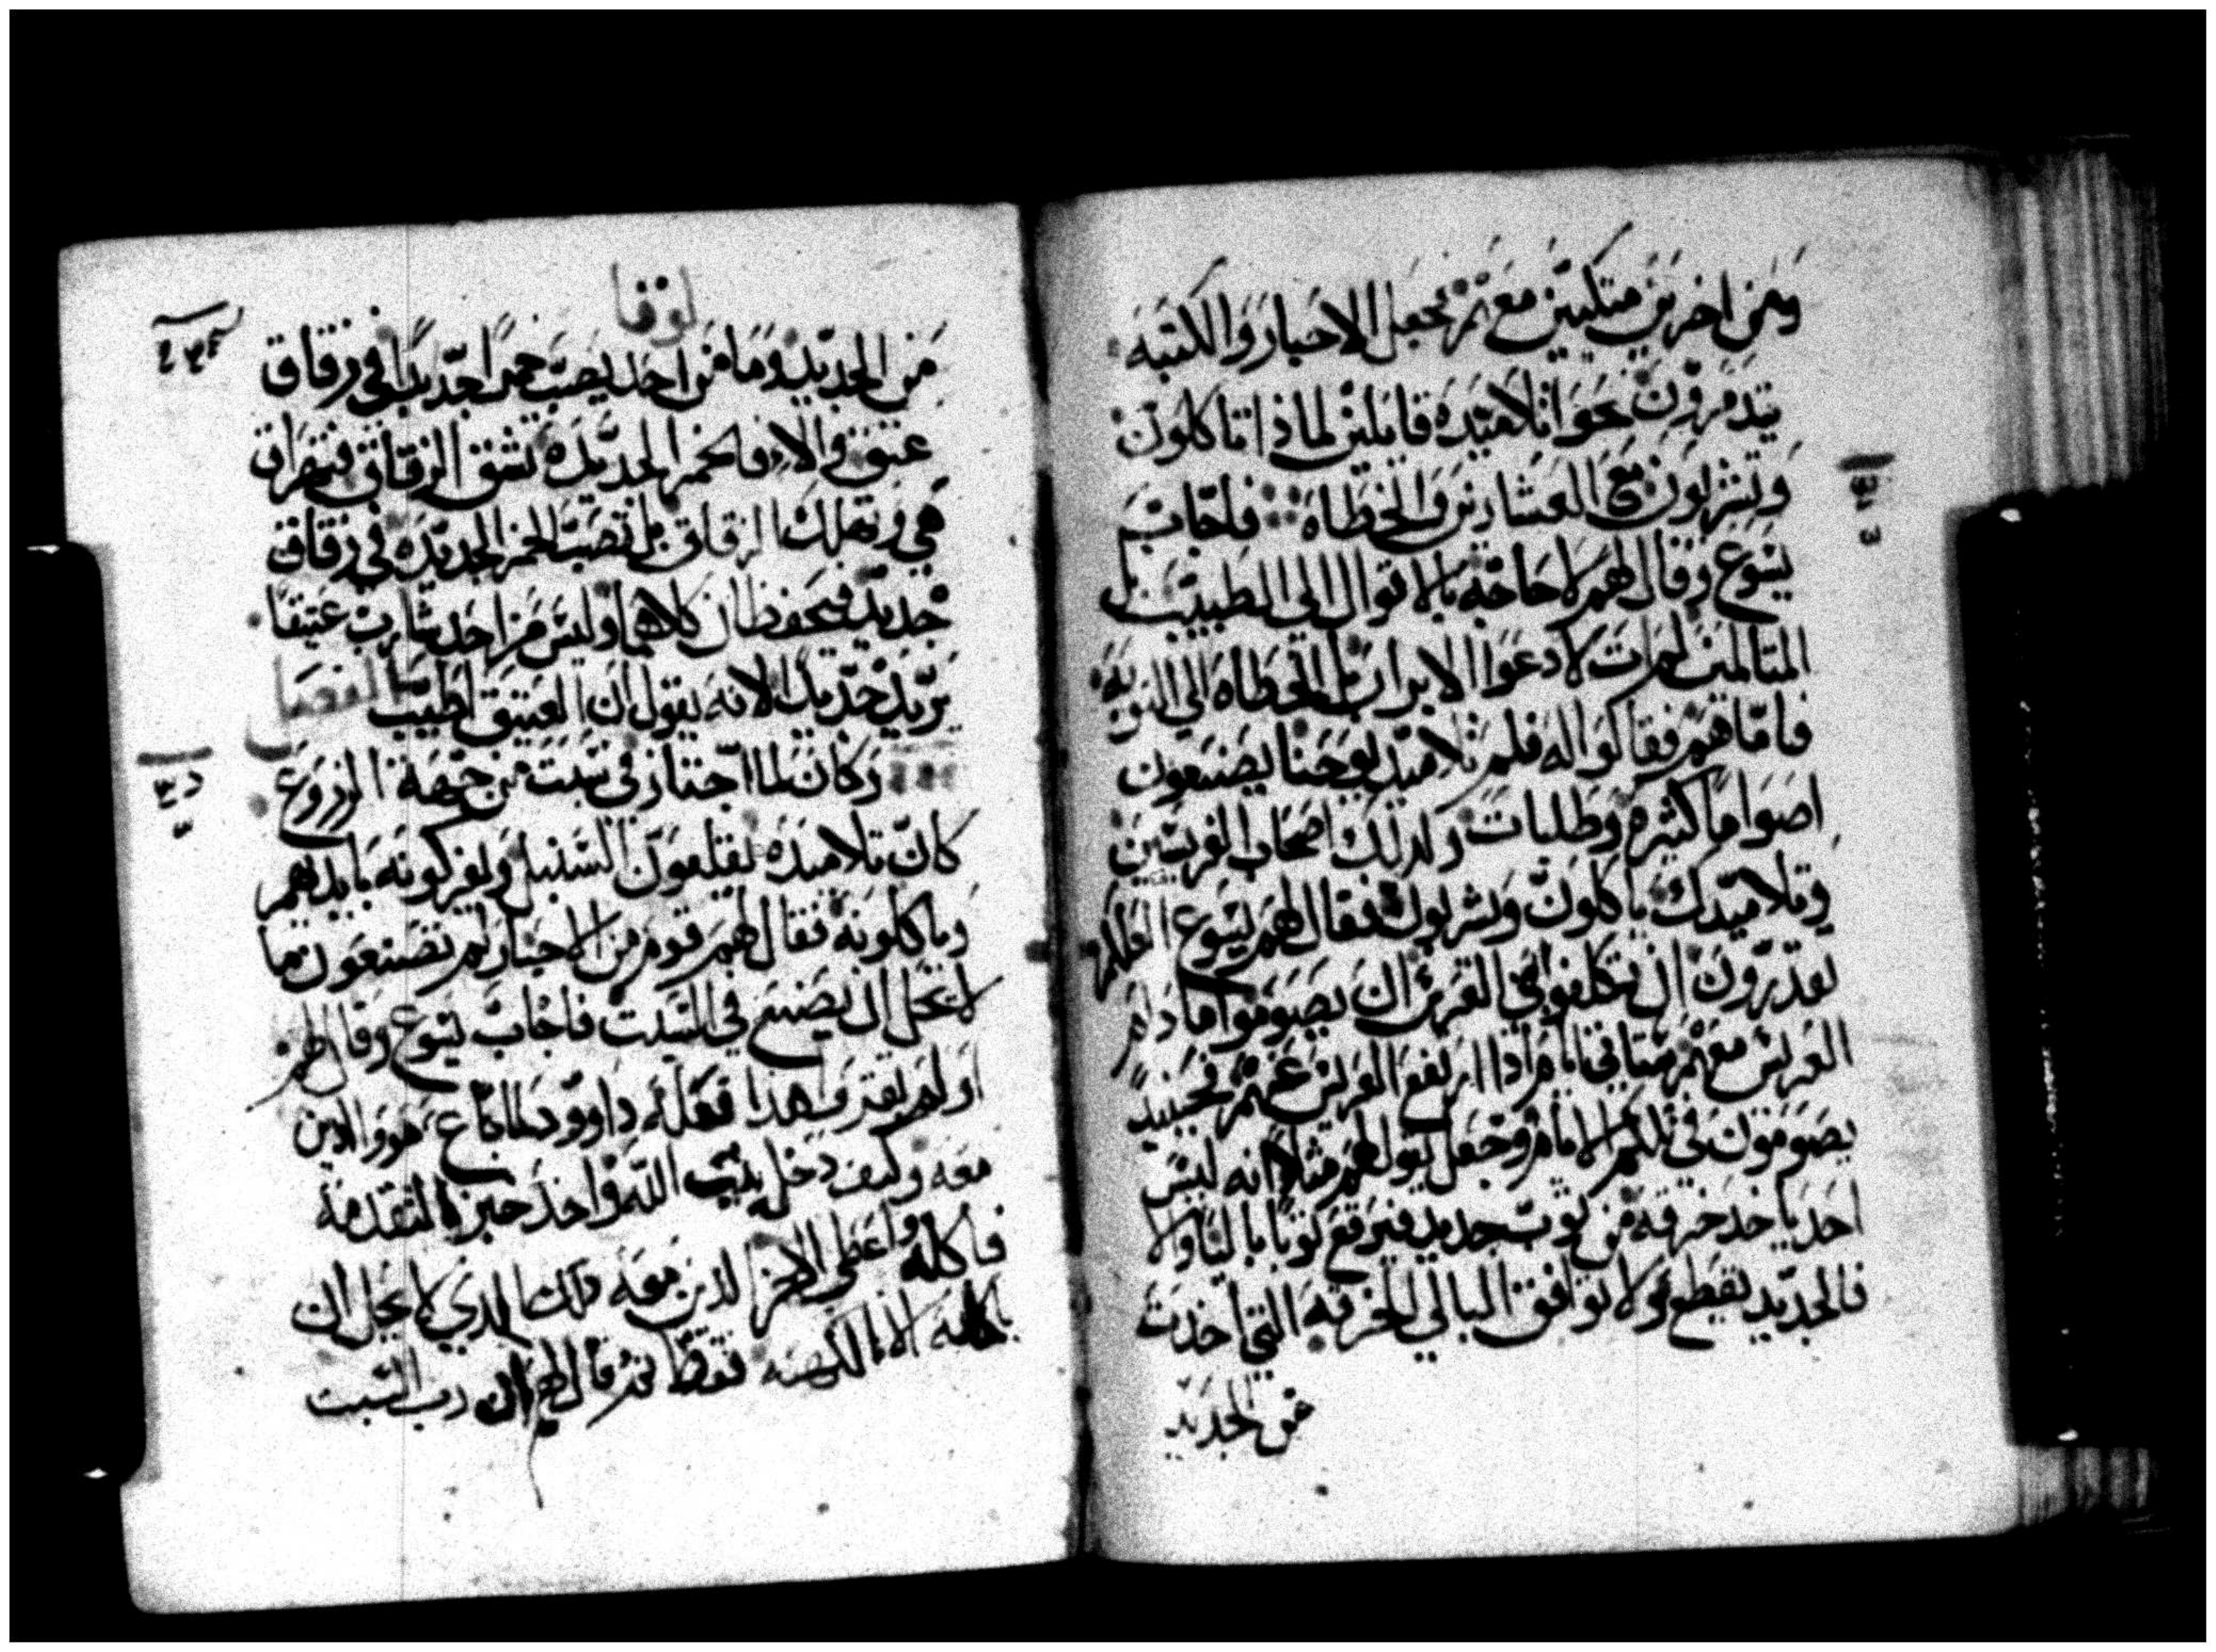 ومن اخرين متكيين معهم فجعل الاحبار والكتبه
يتدمرون نحوا تلاميده قايلين لماذا تاكلون
وتشربون مع العشارين والخطاه فاجاب
يسوع وقال لهم لا حاجه بالاقويا الى الطبيب بل
المتالمين لم ات لادعوا الابرار بل الخطاه الي التوبه
فاما هم فقالوا له فلم تلاميد يوحنا يصنعون
اصواما كثيره وطلبات وكدلك اصحاب الفريسيين
وتلاميدك ياكلون ويشربون فقال لهم يسوع العلكم
تقدرون ان تكلفوا بني العريس ان يصوموا ما دام
العريس معهم ستاتي ايام اذا ارتفع العريس عنهم فحينيد
يصومون في تلكم الايام وجعل يقول لهم مثلا انه ليس
احد ياخد خرقه من ثوب جديد فيرقع ثوبا باليا والا
فالجديد يقطع ولا توافق البالي الخرقه التي اخدت
من الجديد
لوقا
من الجديد وما من احد يصب خمرا جديدا في زقاق
عتيق والا فالخمر الجديده تشق الزقاق فتهراق
هي وتهلك الزقاق بل تصب الخمر الجديده في زقاق
جديد فيحفظان كلاهما وليس من احد شارب عتيقا
يريد جديدا لانه يقول ان العتيق اطيب الفصل
وكان لما اجتاز في سبت من جهة الزروع
كان تلاميده يقلعون السنبل ويفركونه بايديهم
وياكلونه فقال لهم قوم من الاحبار لم تصنعون ما
لا يحل ان يصنع في السبت فاجاب يسوع وقال لهم
اولم تقروا هذا فعله داوود لما جاع هو والدين
معه وكيف دخل بيت الله واخذ خبز التقدمة
فاكله واعطي الاخر الدين معه دلك الدي لا يحل ان
ياكله الا الكهنه فقط ثم قال لهم ان رب السبت